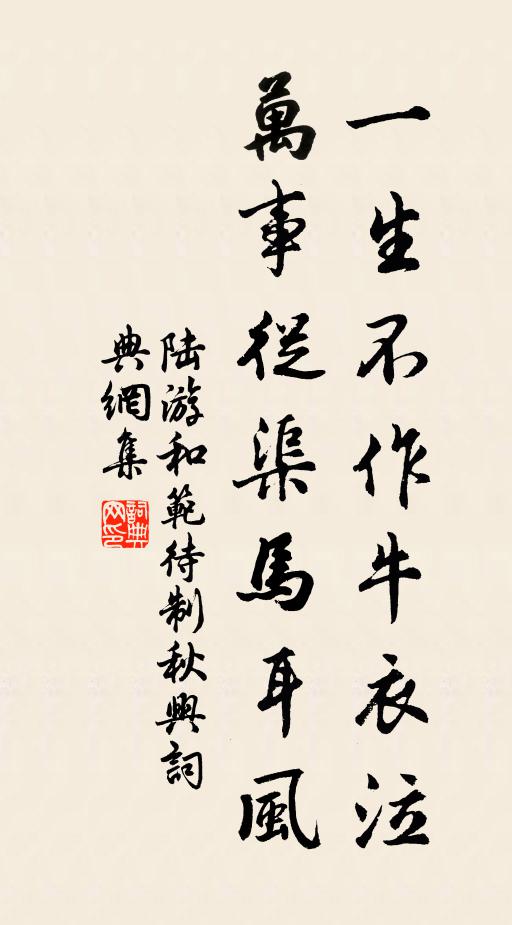 一生不作牛衣泣
萬事從渠馬耳風
陆游和範待制秋興詞
典網集
詞典网印